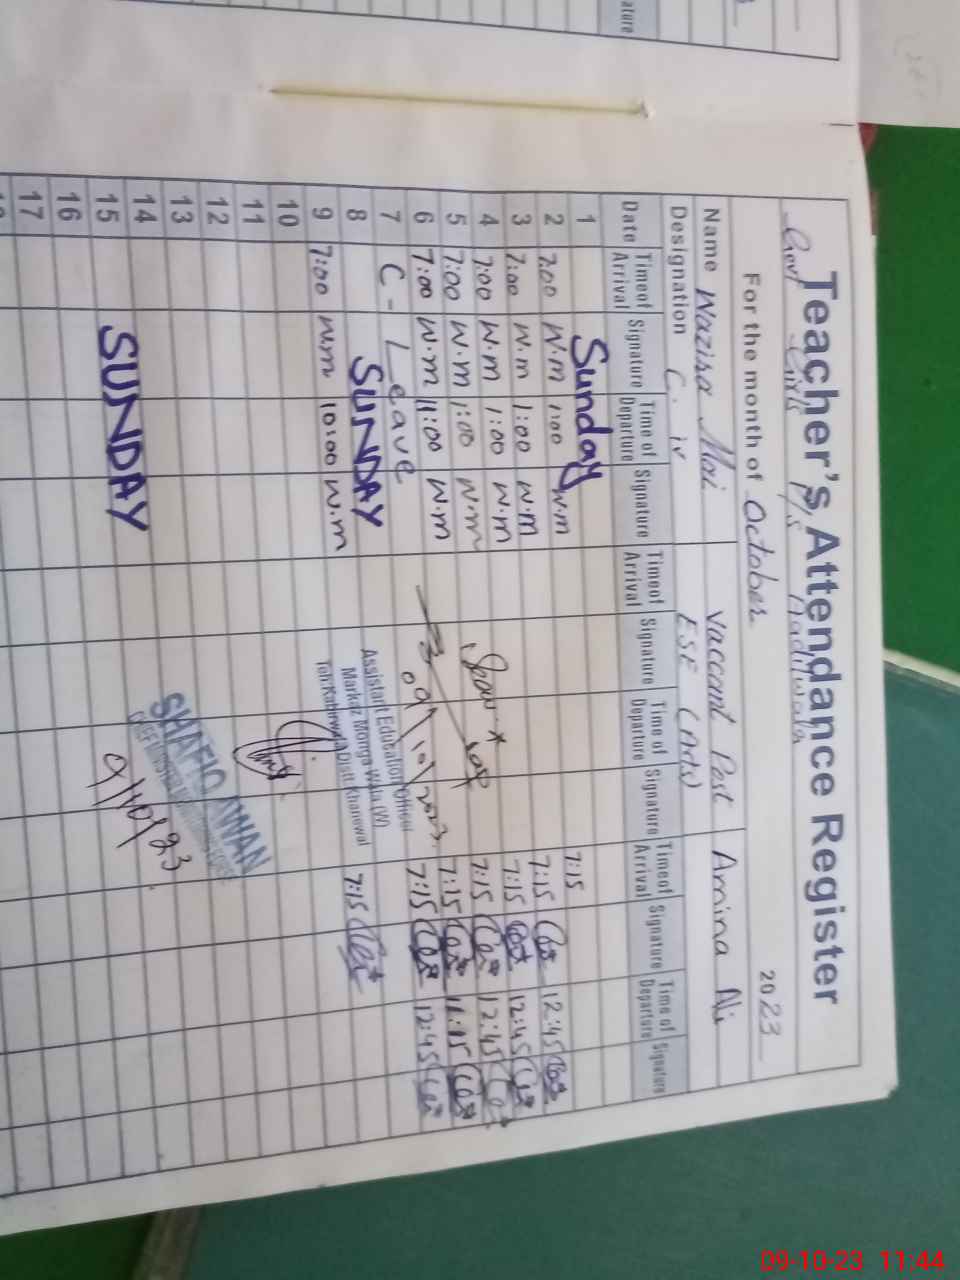 ature
Teacher's Attendance Register
Govt Girls P/S
For the month of October 2023
Name Wazisa Mai Vaccant Post Amina
Designation C. iv ESE (Arts)
Date Time of Arrival Signature Time of Departure Signature Time of Arrival Signature Time of Departure Signature Time of Arrival Signature Time of Departure Signature
1 Sunday 7:15
2 7:00 W.m 1:00 W.m 7:15 12:45
3 7:00 W.m 1:00 W.m 7:15 12:45
4 7:00 W.m 1:00 W.m 7:15 12:45
5 7:00 W.m 1:00 W.m 7:15 11:15
6 7:00 W.m 11:00 W.m 7:15 12:45
7 C - Leave
8 SUNDAY 7:15
9 7:00 W.m 10:00 W.m
09/10/2023
Assistant Education Officer
Markaz Monga Wala (W)
Teh Kabirwala Distt Khanewal
10
11
12
13
14
15 SUNDAY
16
17
SHAFIQ AWAN
9/10/23
09-10-23 11:44